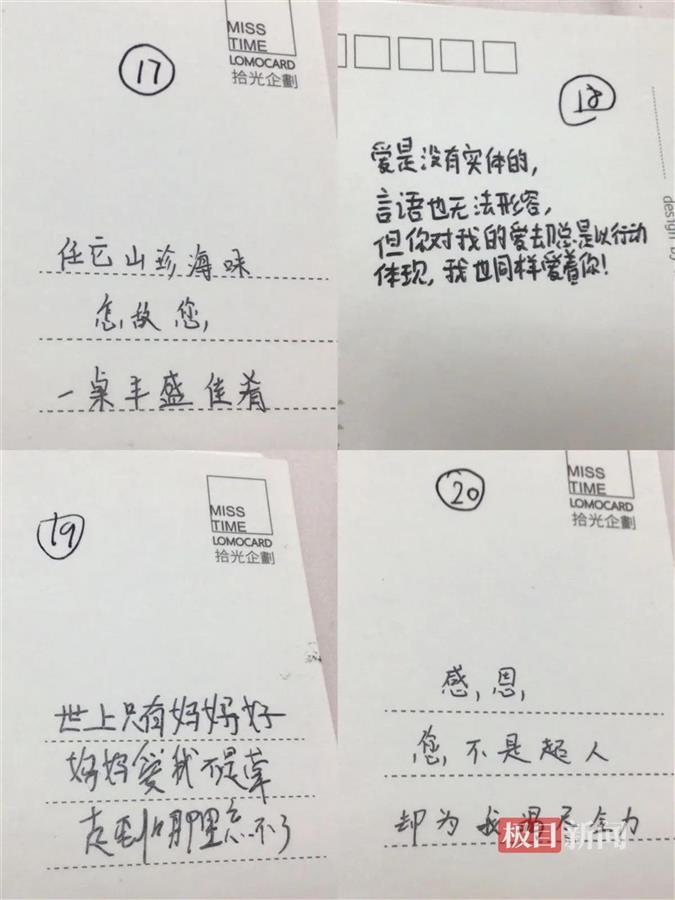 MISS
TIME
LOMOCARD
拾光企劃
17
任它山珍海味
怎敌您,
一桌丰盛佳肴
18
爱是没有实体的,
言语也无法形容,
但你对我的爱却总是以行动
体现,我也同样爱着你!
design by
MISS
TIME
LOMOCARD
拾光企劃
19
世上只有妈妈好
妈妈爱我不是草
走到哪里忘不了
MISS
TIME
LOMOCARD
拾光企劃
20
感恩,
您不是超人
却为我竭尽全力
极目新闻